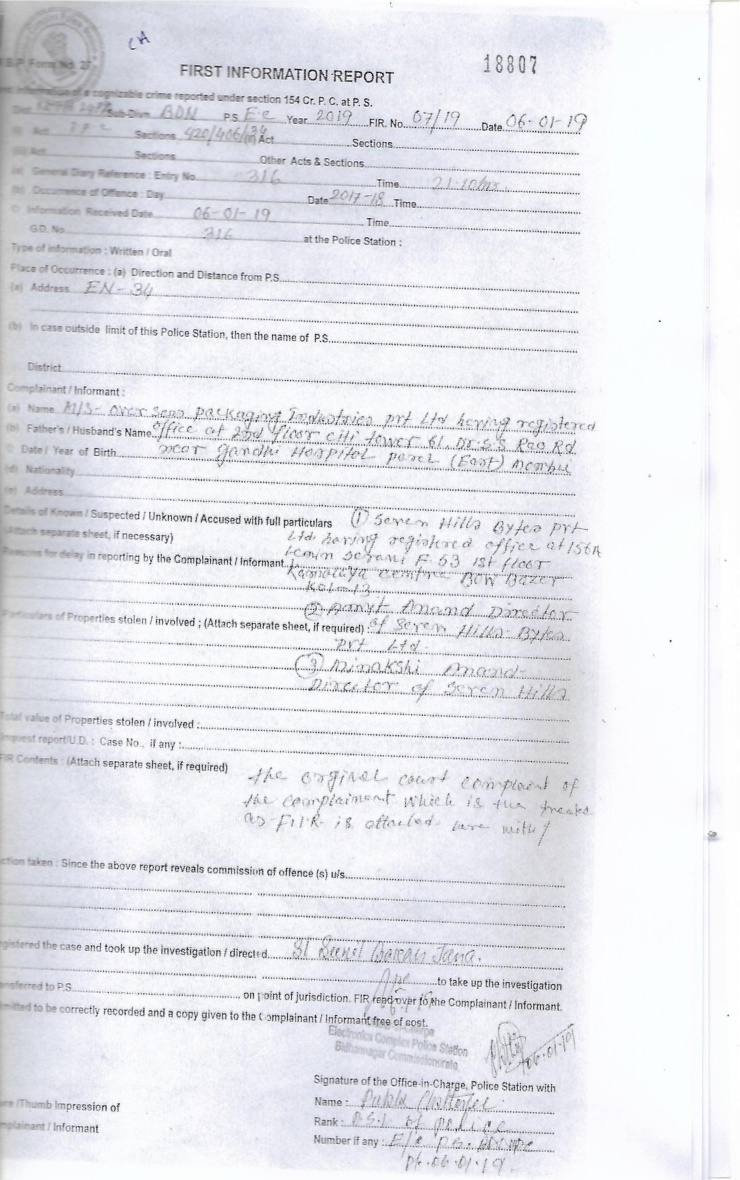 CA
18807
B.P. Form No. 27
FIRST INFORMATION REPORT
information of a cognizable crime reported under section 154 Cr. P. C. at P. S.
Dist. Sub-Divn. BDN P.S. E.C Year 2019 FIR. No. 07/19 Date 06-01-19
(i) Act I P C Sections 420/406/34 (ii) Act Sections
(iii) Act Sections Other Acts & Sections
(a) General Diary Reference : Entry No. 316 Time 21.10hrs.
(b) Occurrence of Offence : Day Date 2017-18 Time
Information Received Date 06-01-19 Time
G.D. No. 316 at the Police Station :
Type of information : Written / Oral
Place of Occurrence : (a) Direction and Distance from P.S.
(a) Address EN-34
(b) In case outside limit of this Police Station, then the name of P.S.
District
Complainant / Informant :
(a) Name M/S- Over Seas packaging Industries prt Ltd having registered
(b) Father's / Husband's Name office at 2nd floor citi tower 61, Dr. S.S Rao Rd
Date / Year of Birth near Gandhi Hospital parel (East)
(d) Nationality
(e) Address
Details of Known / Suspected / Unknown / Accused with full particulars (1) Seven Hills Bytes prt
(Attach separate sheet, if necessary) Ltd. having registered office at 156A
Reasons for delay in reporting by the Complainant / Informant Lenin Serani F. 53 1st floor
Kamalaya centre BOW Bazer
KOL-13
(2) Anand Director
Particulars of Properties stolen / involved ; (Attach separate sheet, if required) of Seven Hills Bytes
prt Ltd.
(3) Minakshi Anand-
Director of Seven Hills
Total value of Properties stolen / involved :
Inquest report/U.D. : Case No., if any :
FIR Contents : (Attach separate sheet, if required)
the orginal court complaint of
the complaiment which is the
as F.I.R. is attached here with/
Action taken : Since the above report reveals commission of offence (s) u/s.
registered the case and took up the investigation / directed SI Sunil Baran Jana.
to take up the investigation
transferred to P.S. on point of jurisdiction. FIR read over to the Complainant / Informant.
admitted to be correctly recorded and a copy given to the Complainant / Informant free of cost.
Electronics Complex Police Station
Bidhannagar Commissionerate
06-01-19
Signature of the Office-in-Charge, Police Station with
Signature /Thumb Impression of Name : Chatterjee
Complainant / Informant Rank : of police
Number if any : E/C P.S.
Dt. 06.01.19